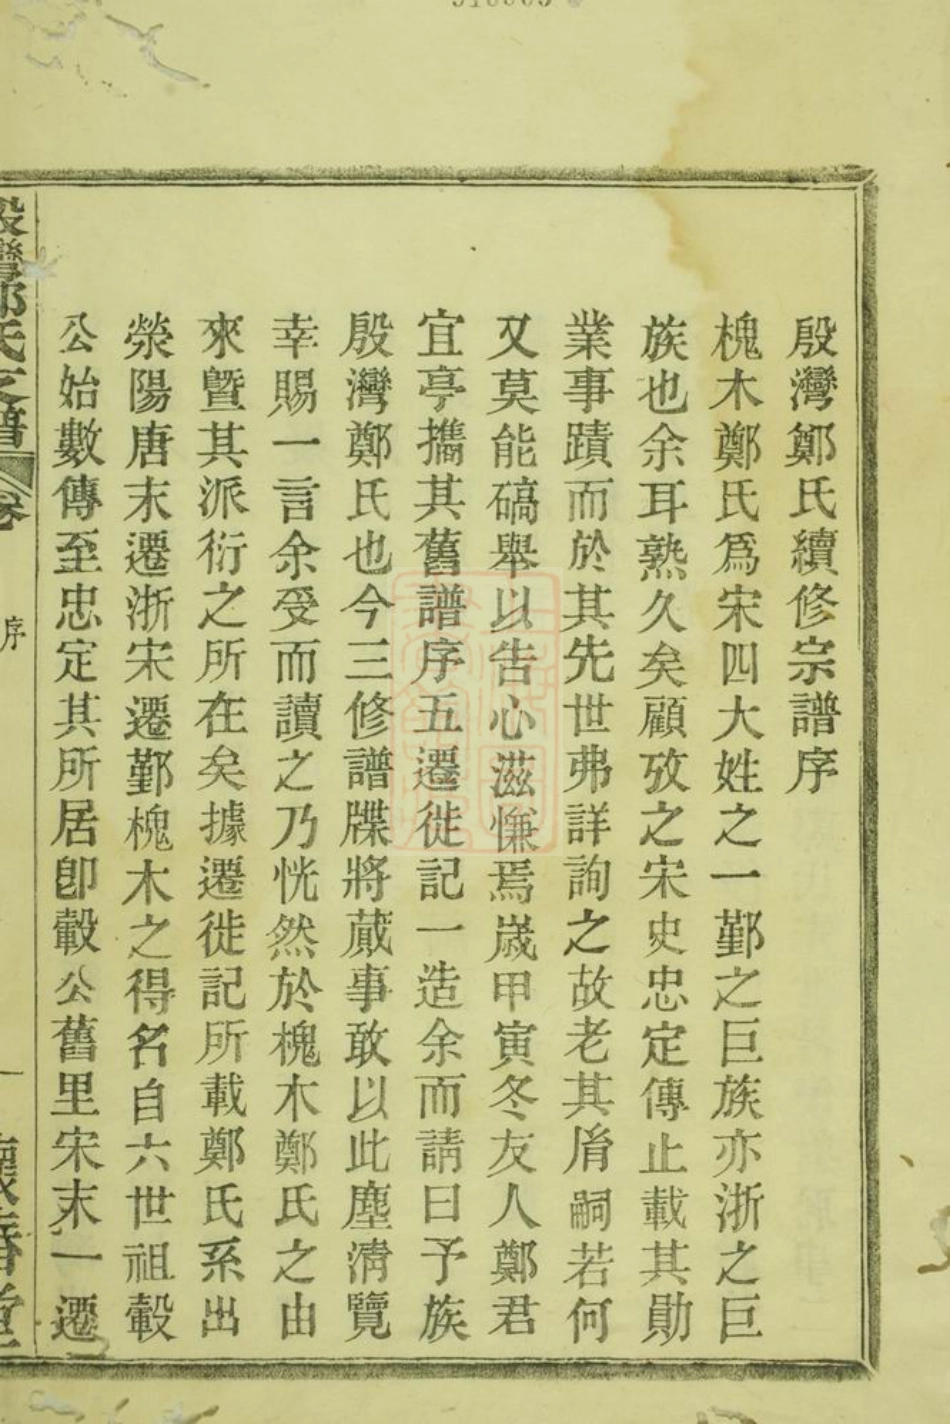 殷灣鄭氏續修宗譜序
槐木鄭氏爲宋四大姓之一鄞之巨族亦浙之巨
族也余耳熟久矣顧攷之宋史忠定傳止載其勛
業事蹟而於其先世弗詳詢之故老其胤嗣若何
又莫能碻舉以告心滋慊焉嵗甲寅冬友人鄭君
宜亭攜其舊譜序五遷徙記一造余而請曰予族
殷灣鄭氏也今三修譜牒將蕆事敢以此塵淸覽
幸賜一言余受而讀之乃恍然於槐木鄭氏之由
來曁其派衍之所在矣據遷徙記所載鄭氏系出
滎陽唐末遷浙宋遷鄞槐木之得名自六世祖轂
公始數傳至忠定其所居卽轂公舊里宋末一遷
殷灣鄭氏支譜
卷
序
一